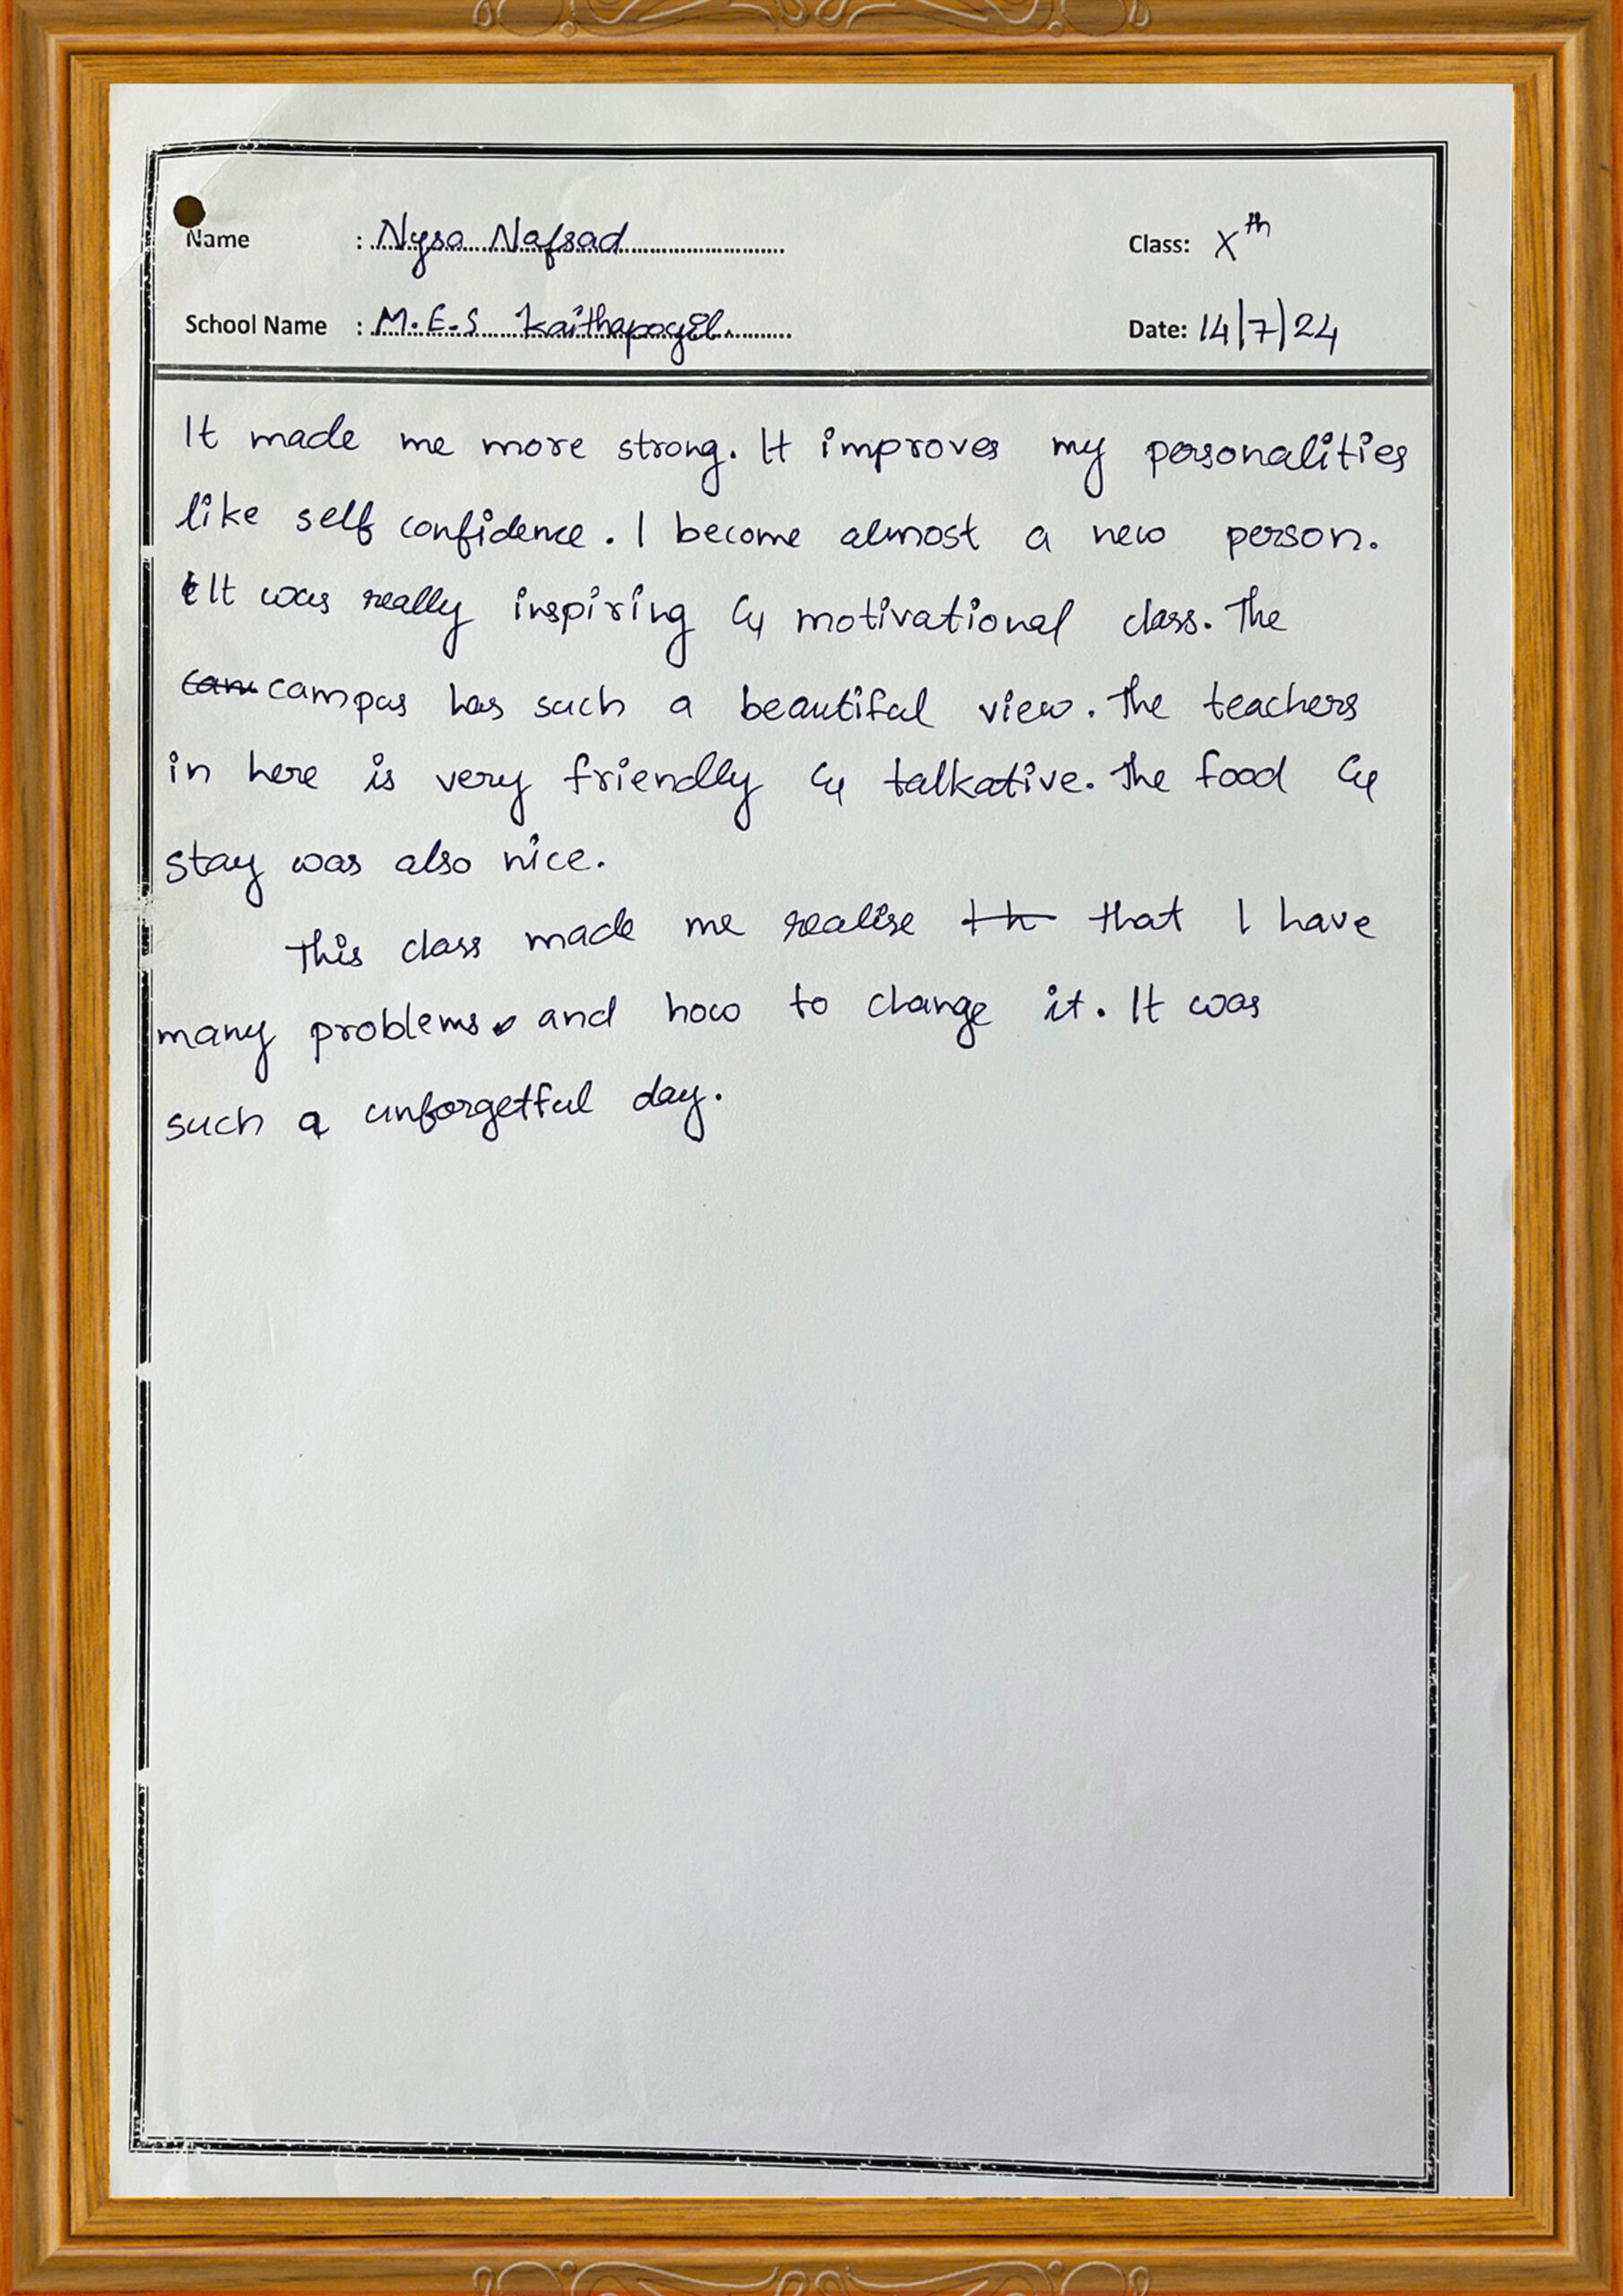 Name : Nysa Nafsad Class: Xth
School Name : M.E.S Kaithapoyil. Date: 14/7/24
It made me more strong. It improves my personalities
like self confidence. I become almost a new person.
It was really inspiring & motivational class. The
campus has such a beautiful view. The teachers
in here is very friendly & talkative. The food &
stay was also nice.
This class made me realise that I have
many problems and how to change it. It was
such a unforgetful day.